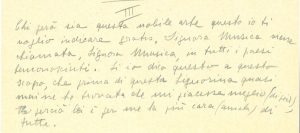 III
Chi però sia questa nobile arte questo io ti
voglio indicare gratis, Signora Musica viene
chiamata, Signora Musica, in tutti i paesi
. Si io dico questo a questo
scopo, che prima di questa Signorina quasi
mai ne ho trovata che mi piacesse meglio
perciò lei è per me la più cara di
tutte.